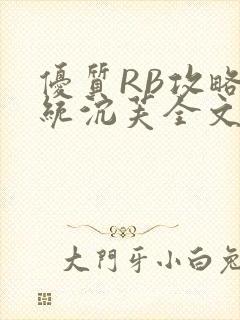 優質RB攻略
統沈芙全文
大門牙小白兔